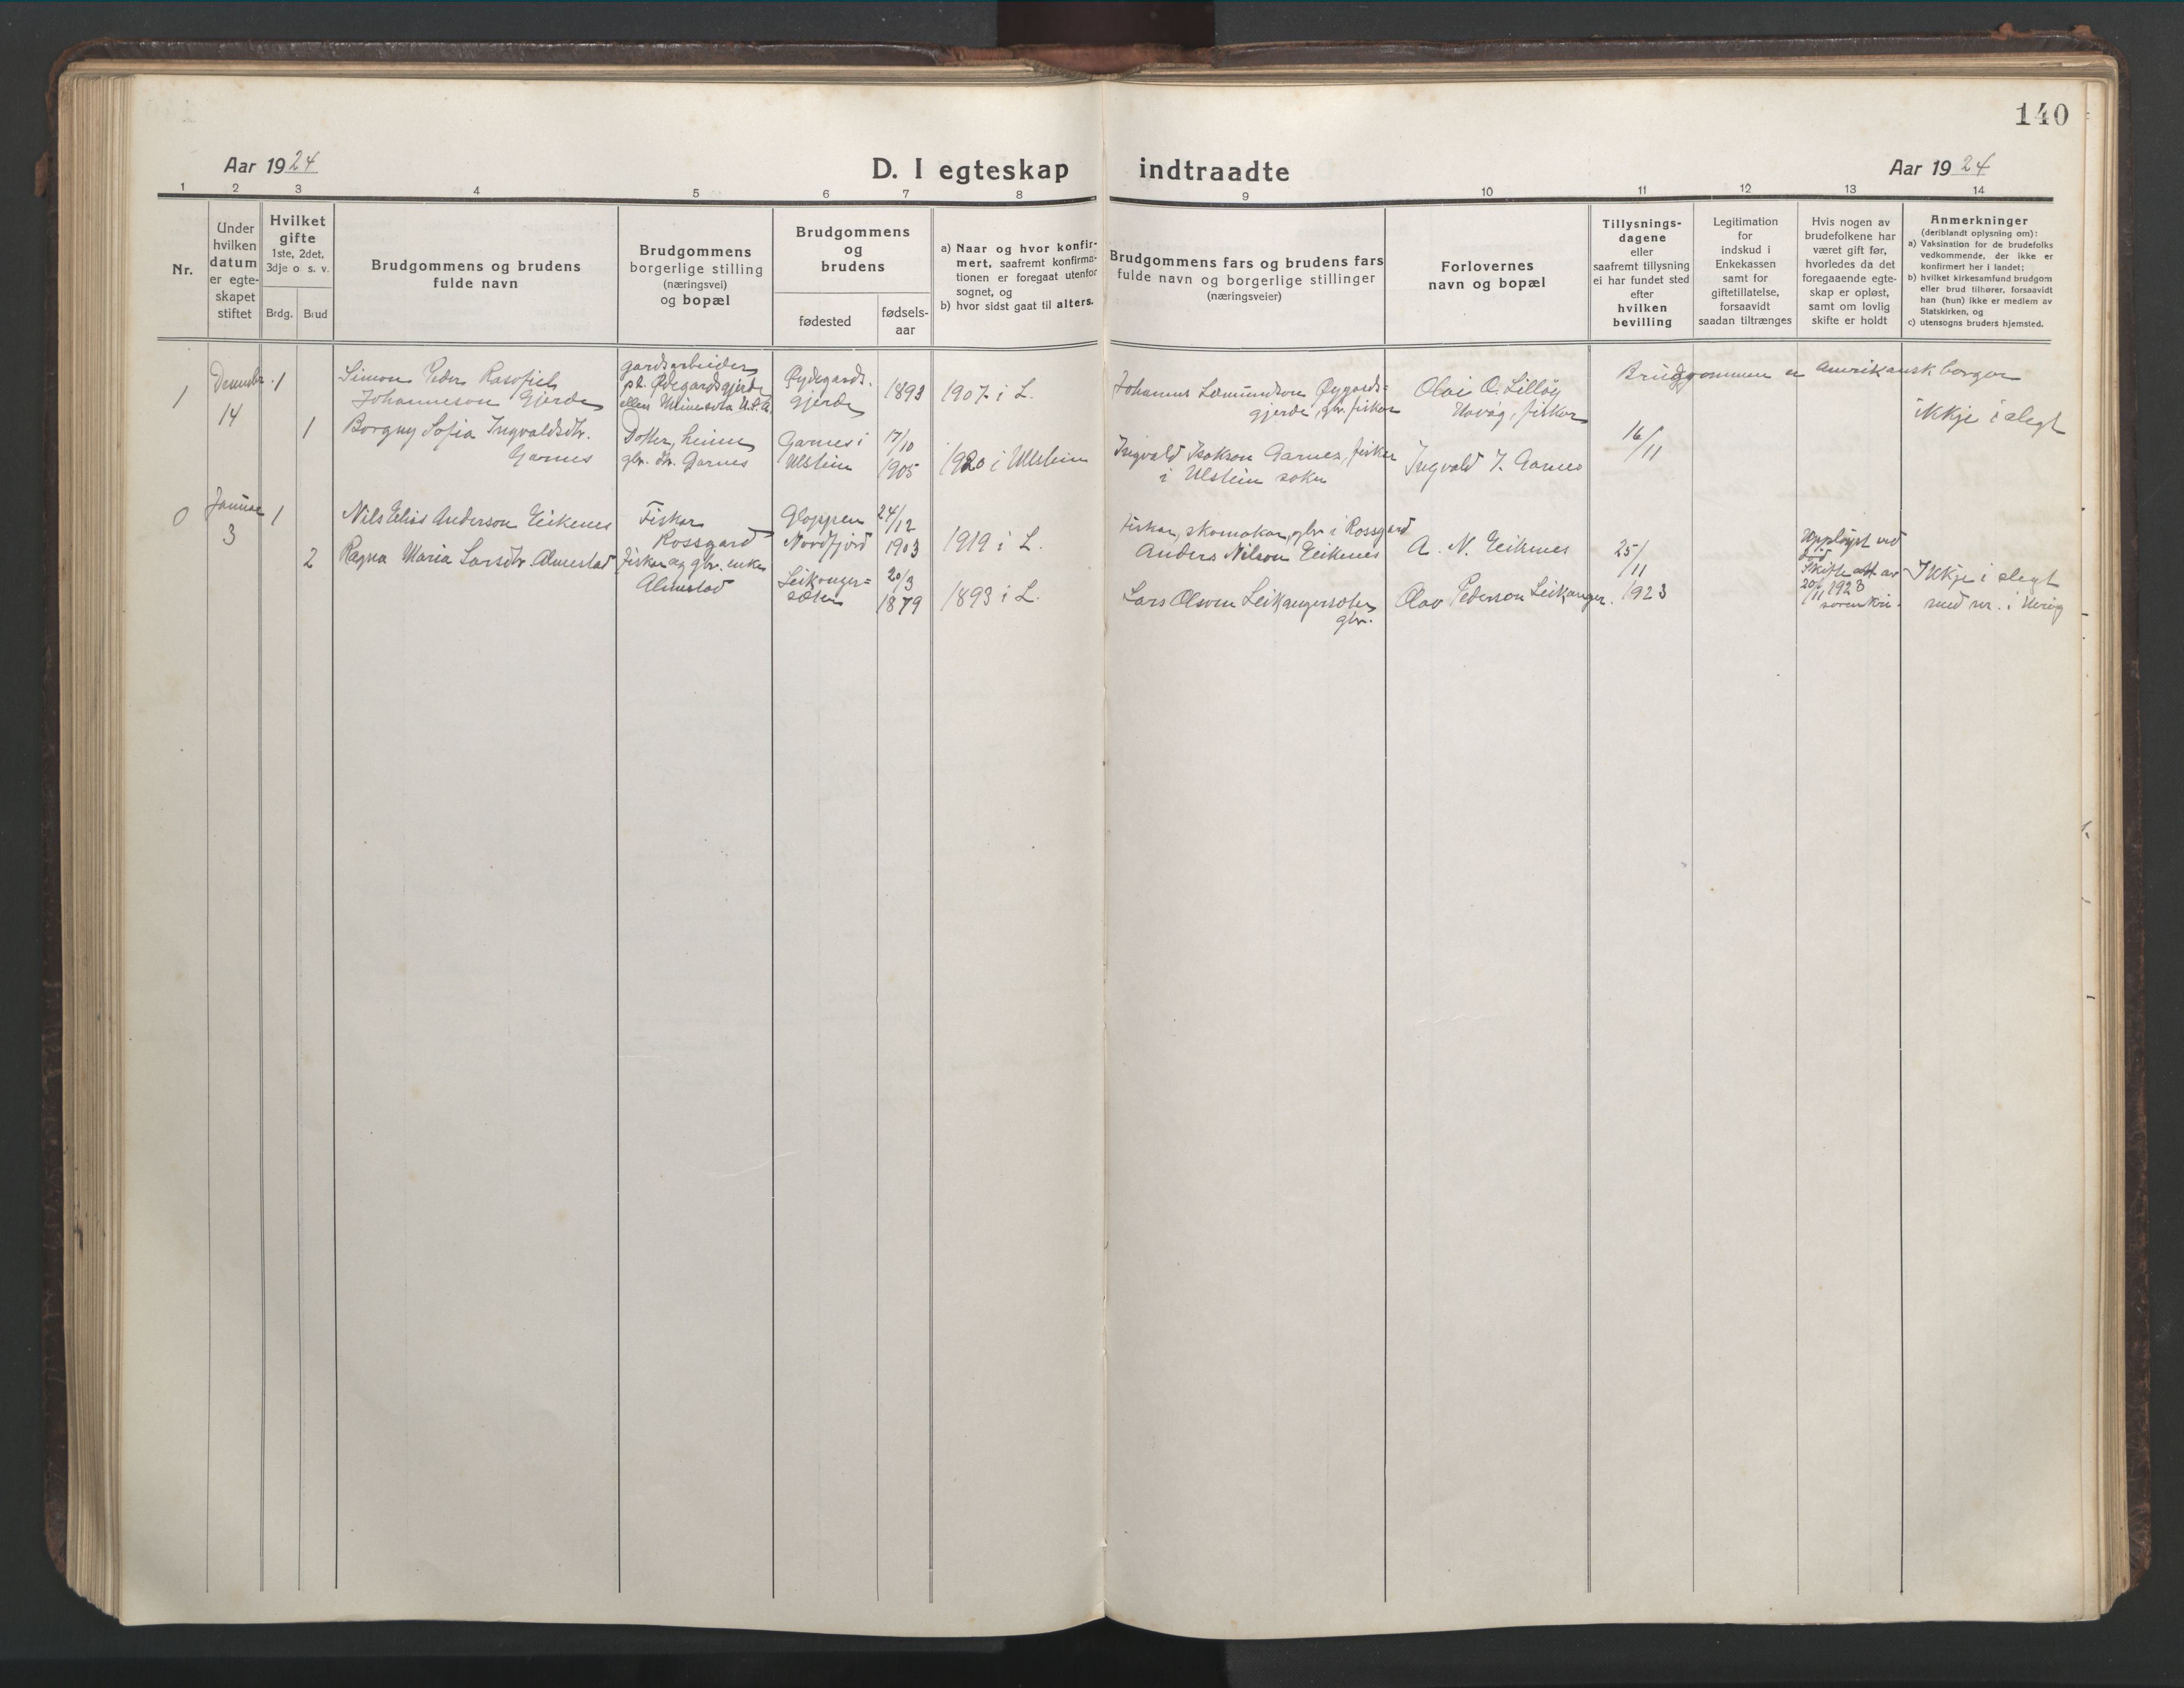 140
Aar 1924
D. I egteskap indtraadte
Aar 1924
1 2 3 4 5 6 7 8 9 10 11 12 13 14
Nr.
Under
hvilken
datum
er egte-
skapet
stiftet
Hvilket
gifte
1ste, 2det,
3dje o s. v.
Brdg. Brud
Brudgommens og brudens
fulde navn
Brudgommens
borgerlige stilling
(næringsvei)
og bopæl
Brudgommens
og
brudens
fødested
fødsels-
aar
a) Naar og hvor konfir-
mert, saafremt konfirma-
tionen er foregaat utenfor
sognet, og
b) hvor sidst gaat til alters.
Brudgommens fars og brudens fars
fulde navn og borgerlige stillinger
(næringsveier)
Forlovernes
navn og bopæl
Tillysnings-
dagene
eller
saafremt tillysning
ei har fundet sted
efter
hvilken
bevilling
Legitimation
for
indskud i
Enkekassen
samt for
giftetillatelse,
forsaavidt
saadan tiltrænges
Hvis nogen av
brudefolkene har
været gift før,
hvorledes da det
foregaaende egte-
skap er opløst,
samt om lovlig
skifte er holdt
Anmerkninger
(deriblandt oplysning om):
a) Vaksination for de brudefolks
vedkommende, der ikke er
konfirmert her i landet;
b) hvilket kirkesamfund brudgom
eller brud tilhører, forsaavidt
han (hun) ikke er medlem av
Statskirken, og
c) utensogns bruders hjemsted.
1
Desember
14
1
Simon Peder
Johanneson Gjerde
gardsarbeider
Minesota U.S.A.
Øydegards-
gjerde
1893
1907 i L.
Johannes
gjerde, gbr. fiskar
Olai O. Lilløy
Havåg, fiskar
Brudgommen er Amerikansk borgar
ikkje i slegt
1
Borgny Sofia Ingvaldsdtr.
Garnes
Dotter, heime
gbr. dtr. Garnes
Garnes i
Ulstein
17/10
1905
1920 i Ulstein
Ingvald Isakson Garnes, fiskar
i Ulstein sokn
Ingvald I. Garnes
16/11
0
Januar
3
1
Nils Elias Anderson Eikenes
Fiskar
Rossgard
Gloppen
Nordfjord
24/12
1903
1919 i L.
Fiskar, skomakar, gbr i Rossgard
Anders Nilson Eikenes
A. N. Eiknes
25/11
1923
2
Ragna Maria Larsdtr Almestad
Fiskar og gbr. enke
Almestad
Leikanger-
sæter
20/3
1879
1893 i L.
Lars Olson Leikangersæter
gbr.
Olav Pederson Leikanger.
Uppløyst ved
død
Skifte att av
20/11 1923
sorenskri.
Ikkje i slegt
med nr. i Herøy